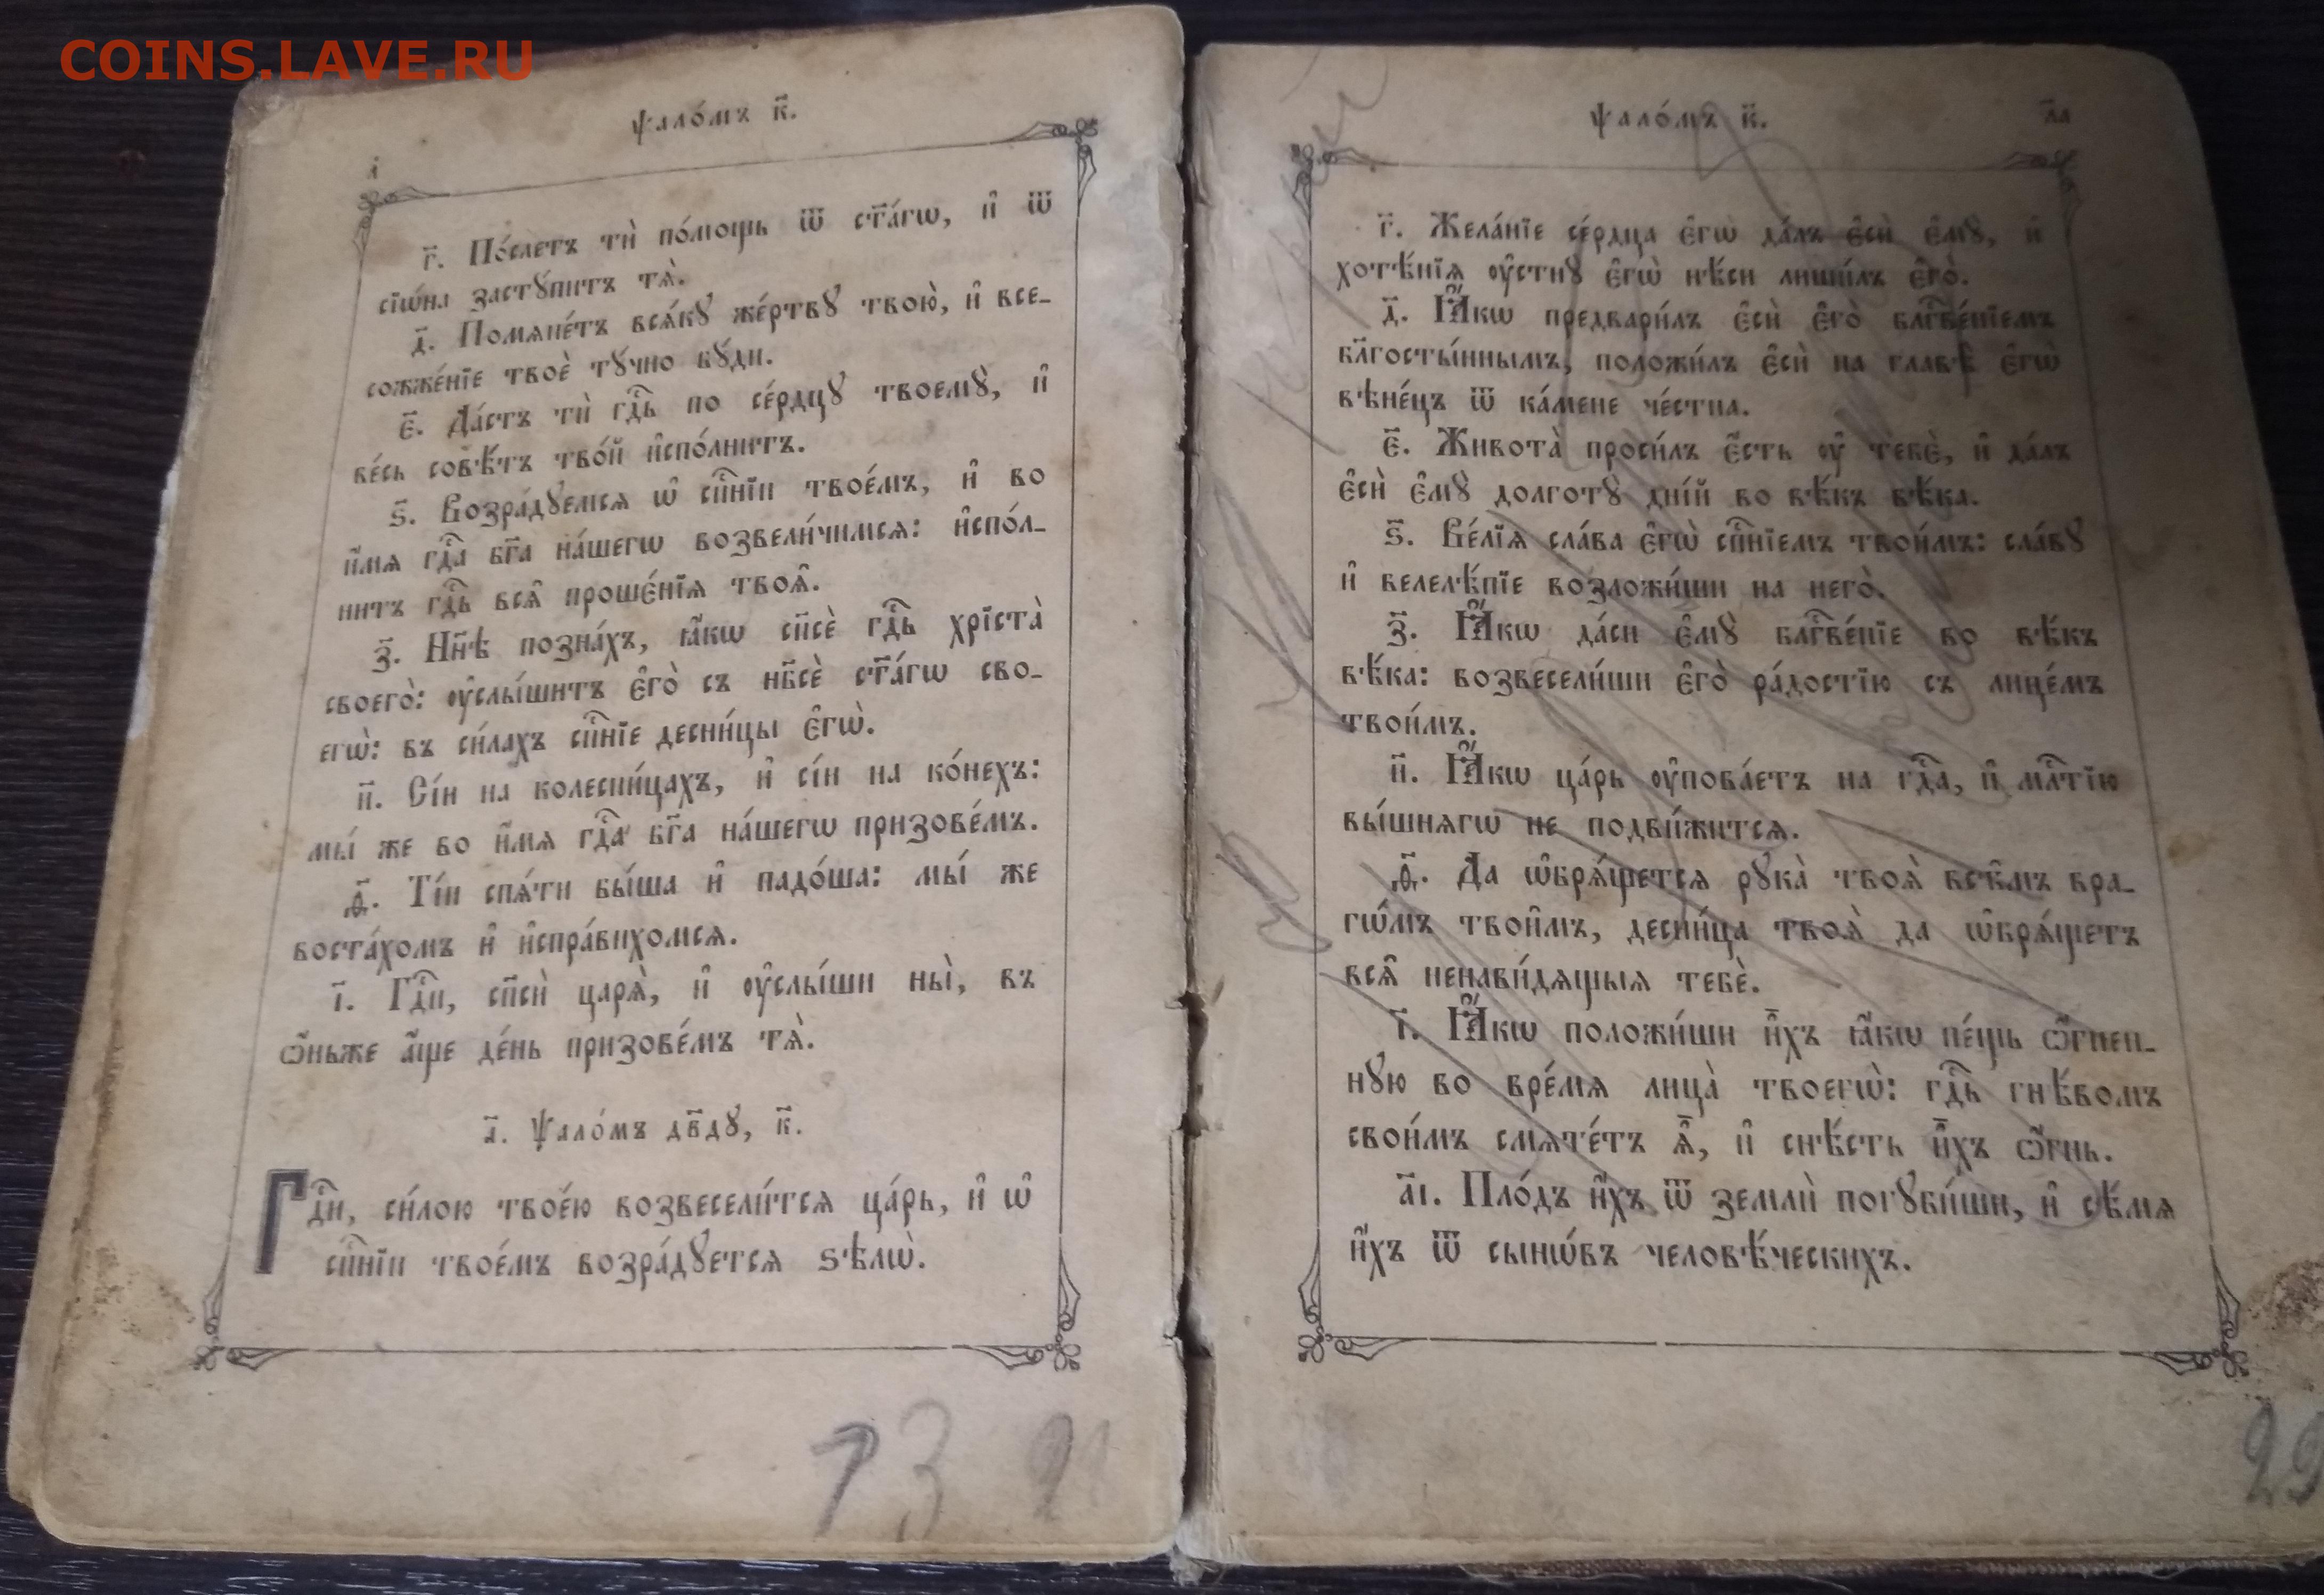 COINS.LAVE.RU
ѱало́мъ к҃.
г҃. По́слетъ тѝ по́мощь ѿ ст҃а́гѡ, и҆ ѿ
сїѡ́на застꙋ́питъ тѧ̀.
д҃. Помѧне́тъ всѧ́кꙋ же́ртвꙋ твою̀, и҆ все-
сожже́нїе твоѐ тꙋ́чно бꙋ́ди.
є҃. Да́стъ тѝ гдⷭ҇ь по се́рдцꙋ твоемꙋ̀, и҆
ве́сь совѣ́тъ тво́й и҆спо́лнитъ.
ѕ҃. Возра́дꙋемсѧ ѡ҆ сп҃нїи твое́мъ, и҆ во
и҆́мѧ гдⷭ҇а бг҃а на́шегѡ возвели́чимсѧ: и҆спо́л-
нитъ гдⷭ҇ь всѧ҄ проше́нїѧ твоѧ҄.
з҃. Нн҃ѣ позна́хъ, ꙗ҆́кѡ сп҃сѐ гдⷭ҇ь хрїста̀
своего̀: ᲂу҆слы́шитъ є҆го̀ съ нб҃сѐ ст҃а́гѡ сво-
егѡ̀: въ си́лахъ сп҃нїе десни́цы є҆гѡ̀.
и҃. Сі́и на колесни́цахъ, и҆ сі́и на ко́нехъ:
мы́ же во и҆́мѧ гдⷭ҇а бг҃а на́шегѡ призове́мъ.
ѳ҃. Ті́и спѧ́ти бы́ша и҆ падо́ша: мы́ же
воста́хомъ и҆ и҆спра́вихомсѧ.
і҃. Гдⷭ҇и, сп҃сѝ царѧ̀, и҆ ᲂу҆слы́ши ны̀, въ
ѻ҆́ньже а҆́ще де́нь призове́мъ тѧ̀.
а҃. Ѱало́мъ дв҃дꙋ, к҃.
Гдⷭ҇и, си́лою твое́ю возвесели́тсѧ ца́рь, и҆ ѡ҆
сп҃нїи твое́мъ возра́дꙋетсѧ ѕѣлѡ̀.
13
ѱало́мъ к҃.
л҃а
г҃. Жела́нїе се́рдца є҆гѡ̀ да́лъ є҆сѝ є҆мꙋ̀, и҆
хотѣ́нїѧ ᲂу҆стнꙋ̀ є҆гѡ̀ нѣ́си лиши́лъ є҆го̀.
д҃. Ꙗ҆́кѡ предвари́лъ є҆сѝ є҆го̀ блгⷭ҇ве́нїемъ
бл҃госты́ннымъ, положи́лъ є҆сѝ на главѣ̀ є҆гѡ̀
вѣне́цъ ѿ ка́мене че́стна.
є҃. Живота̀ проси́лъ є҆́сть ᲂу҆ тебє̀, и҆ да́лъ
є҆сѝ є҆мꙋ̀ долготꙋ̀ дні́й во вѣ́къ вѣ́ка.
ѕ҃. Ве́лїѧ сла́ва є҆гѡ̀ сп҃нїемъ твои́мъ: сла́вꙋ
и҆ велелѣ́пїе возложи́ши на него̀.
з҃. Ꙗ҆́кѡ да́си є҆мꙋ̀ блгⷭ҇ве́нїе во вѣ́къ
вѣ́ка: возвесели́ши є҆го̀ ра́достїю съ лице́мъ
твои́мъ.
и҃. Ꙗ҆́кѡ ца́рь ᲂу҆пова́етъ на гдⷭ҇а, и҆ млⷭ҇тїю
вы́шнѧгѡ не подви́житсѧ.
ѳ҃. Да ѡ҆брѧ́щетсѧ рꙋка̀ твоѧ̀ всѣ҄мъ вра-
гѡ́мъ твои҄мъ, десни́ца твоѧ̀ да ѡ҆брѧ́щетъ
всѧ҄ ненави́дѧщыѧ тебѐ.
і҃. Ꙗ҆́кѡ положи́ши и҆̀хъ ꙗ҆́кѡ пе́щь ѻ҆́гнен-
нꙋю во вре́мѧ лица̀ твоегѡ̀: гдⷭ҇ь гнѣ́вомъ
свои́мъ смѧте́тъ ѧ҆̀, и҆ снѣ́сть и҆̀хъ ѻ҆́гнь.
а҃і. Пло́дъ и҆́хъ ѿ землѝ погꙋби́ши, и҆ сѣ́мѧ
и҆́хъ ѿ сынѡ́въ человѣ́ческихъ.
29